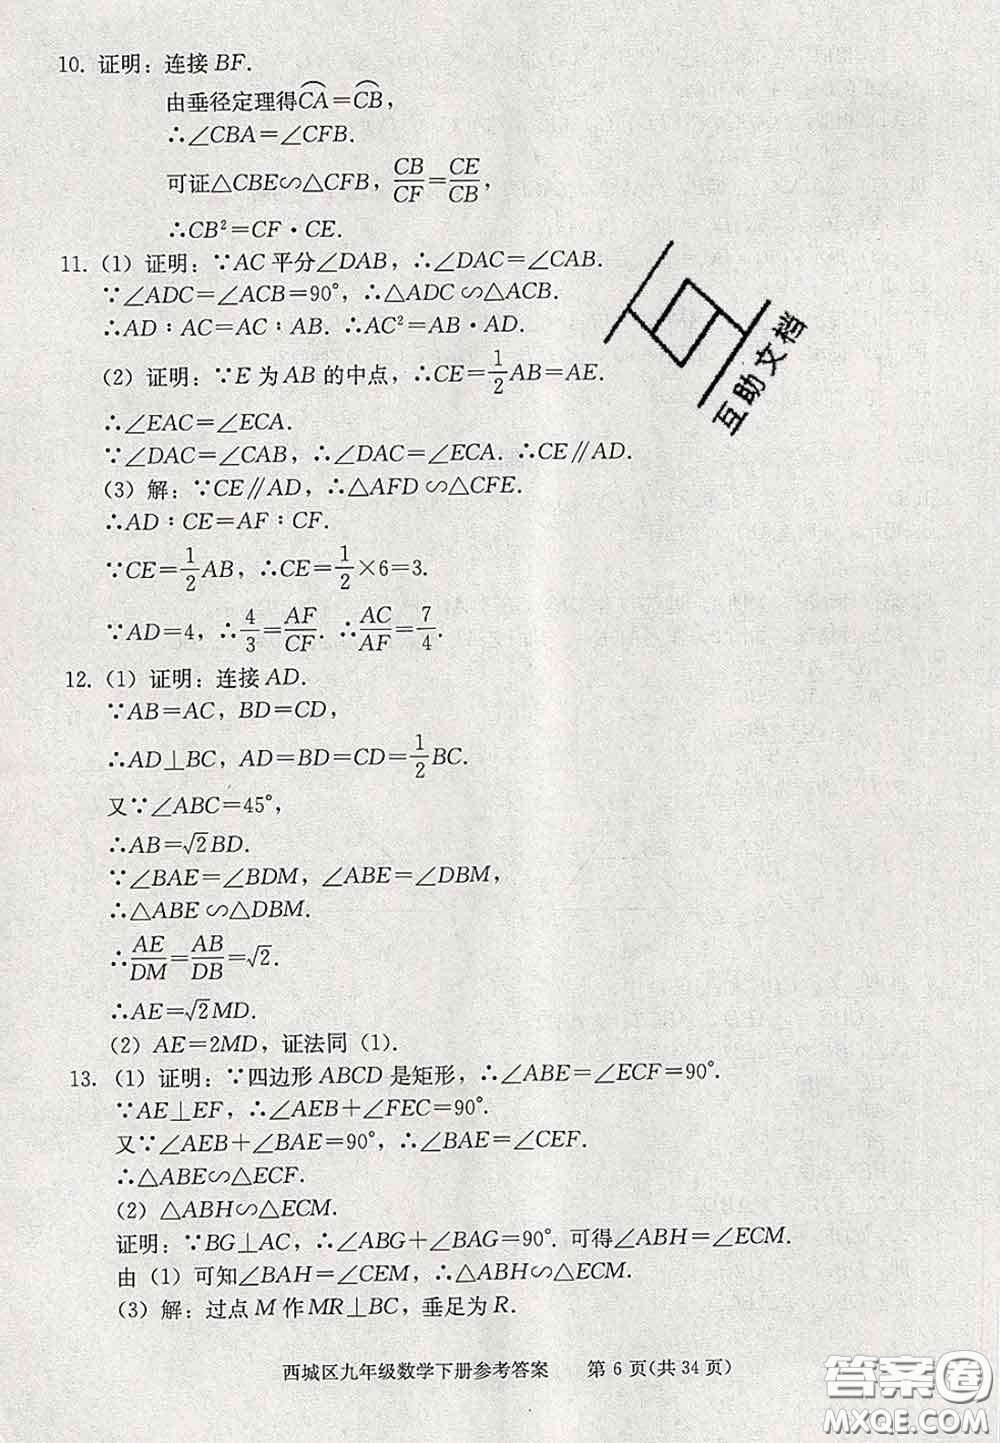 10. 证明：连接 BF.
由垂径定理得CA=CB，
∴∠CBA=∠CFB.
可证△CBE∽△CFB，CB/CF=CE/CB，
∴CB²=CF·CE.
11.（1）证明：∵AC 平分∠DAB，∴∠DAC=∠CAB.
∵∠ADC=∠ACB=90°，∴△ADC∽△ACB.
∴AD：AC=AC：AB. ∴AC²=AB·AD.
（2）证明：∵E 为 AB 的中点，∴CE=1/2AB=AE.
∴∠EAC=∠ECA.
∵∠DAC=∠CAB，∴∠DAC=∠ECA. ∴CE∥AD.
（3）解：∵CE∥AD，∴△AFD∽△CFE.
∴AD：CE=AF：CF.
∵CE=1/2AB，∴CE=1/2×6=3.
∵AD=4，∴4/3=AF/CF. ∴AC/AF=7/4.
12.（1）证明：连接 AD.
∵AB=AC，BD=CD，
∴AD⊥BC，AD=BD=CD=1/2BC.
又∵∠ABC=45°，
∴AB=√2BD.
∵∠BAE=∠BDM，∠ABE=∠DBM，
∴△ABE∽△DBM.
∴AE/DM=AB/DB=√2.
∴AE=√2MD.
（2）AE=2MD，证法同（1）.
13.（1）证明：∵四边形 ABCD 是矩形，∴∠ABE=∠ECF=90°.
∵AE⊥EF，∴∠AEB+∠FEC=90°.
又∵∠AEB+∠BAE=90°，∴∠BAE=∠CEF.
∴△ABE∽△ECF.
（2）△ABH∽△ECM.
证明：∵BG⊥AC，∴∠ABG+∠BAG=90°. 可得∠ABH=∠ECM.
由（1）可知∠BAH=∠CEM，∴△ABH∽△ECM.
（3）解：过点 M 作 MR⊥BC，垂足为 R.
西城区九年级数学下册参考答案 第 6 页(共 34 页)
互助文档
答案圈
MXQE.COM